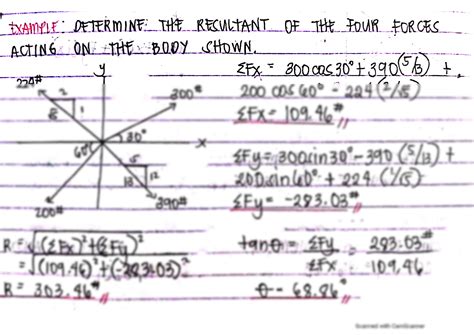 EXAMPLE: DETERMINE THE RESULTANT OF THE FOUR FORCES
ACTING ON THE BODY SHOWN.
y
224#
2
1
√5
300#
30°
x
60°
5
12
13
200#
390#
ΣFx = 300cos30° + 390(5/13) +
200 cos 60° - 224 (2/√5)
ΣFx = 109.46#
ΣFy = 300sin30° - 390(5/13) +
200sin60° + 224 (1/√5)
ΣFy = -283.03#
R = √(ΣFx)² + (ΣFy)²
= √(109.46)² + (-283.03)²
R = 303.46#
tanθ = ΣFy / ΣFx = 283.03# / 109.46
θ = 68.86°
Scanned with CamScanner